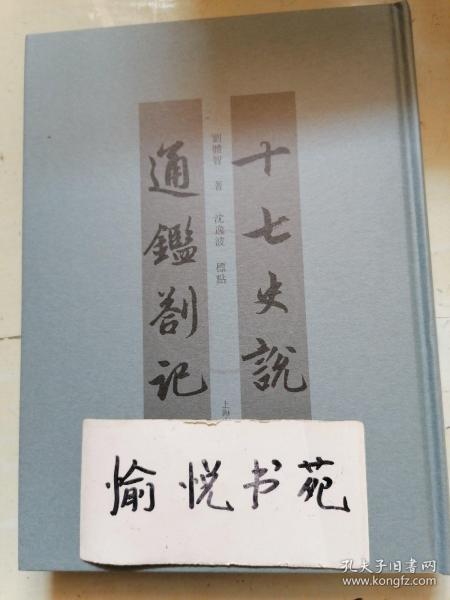 十七史說
劉體智 著 沈逸波 標點
通鑑劄記
上海
愉悦书苑
孔夫子旧书网
www.kongfz.com